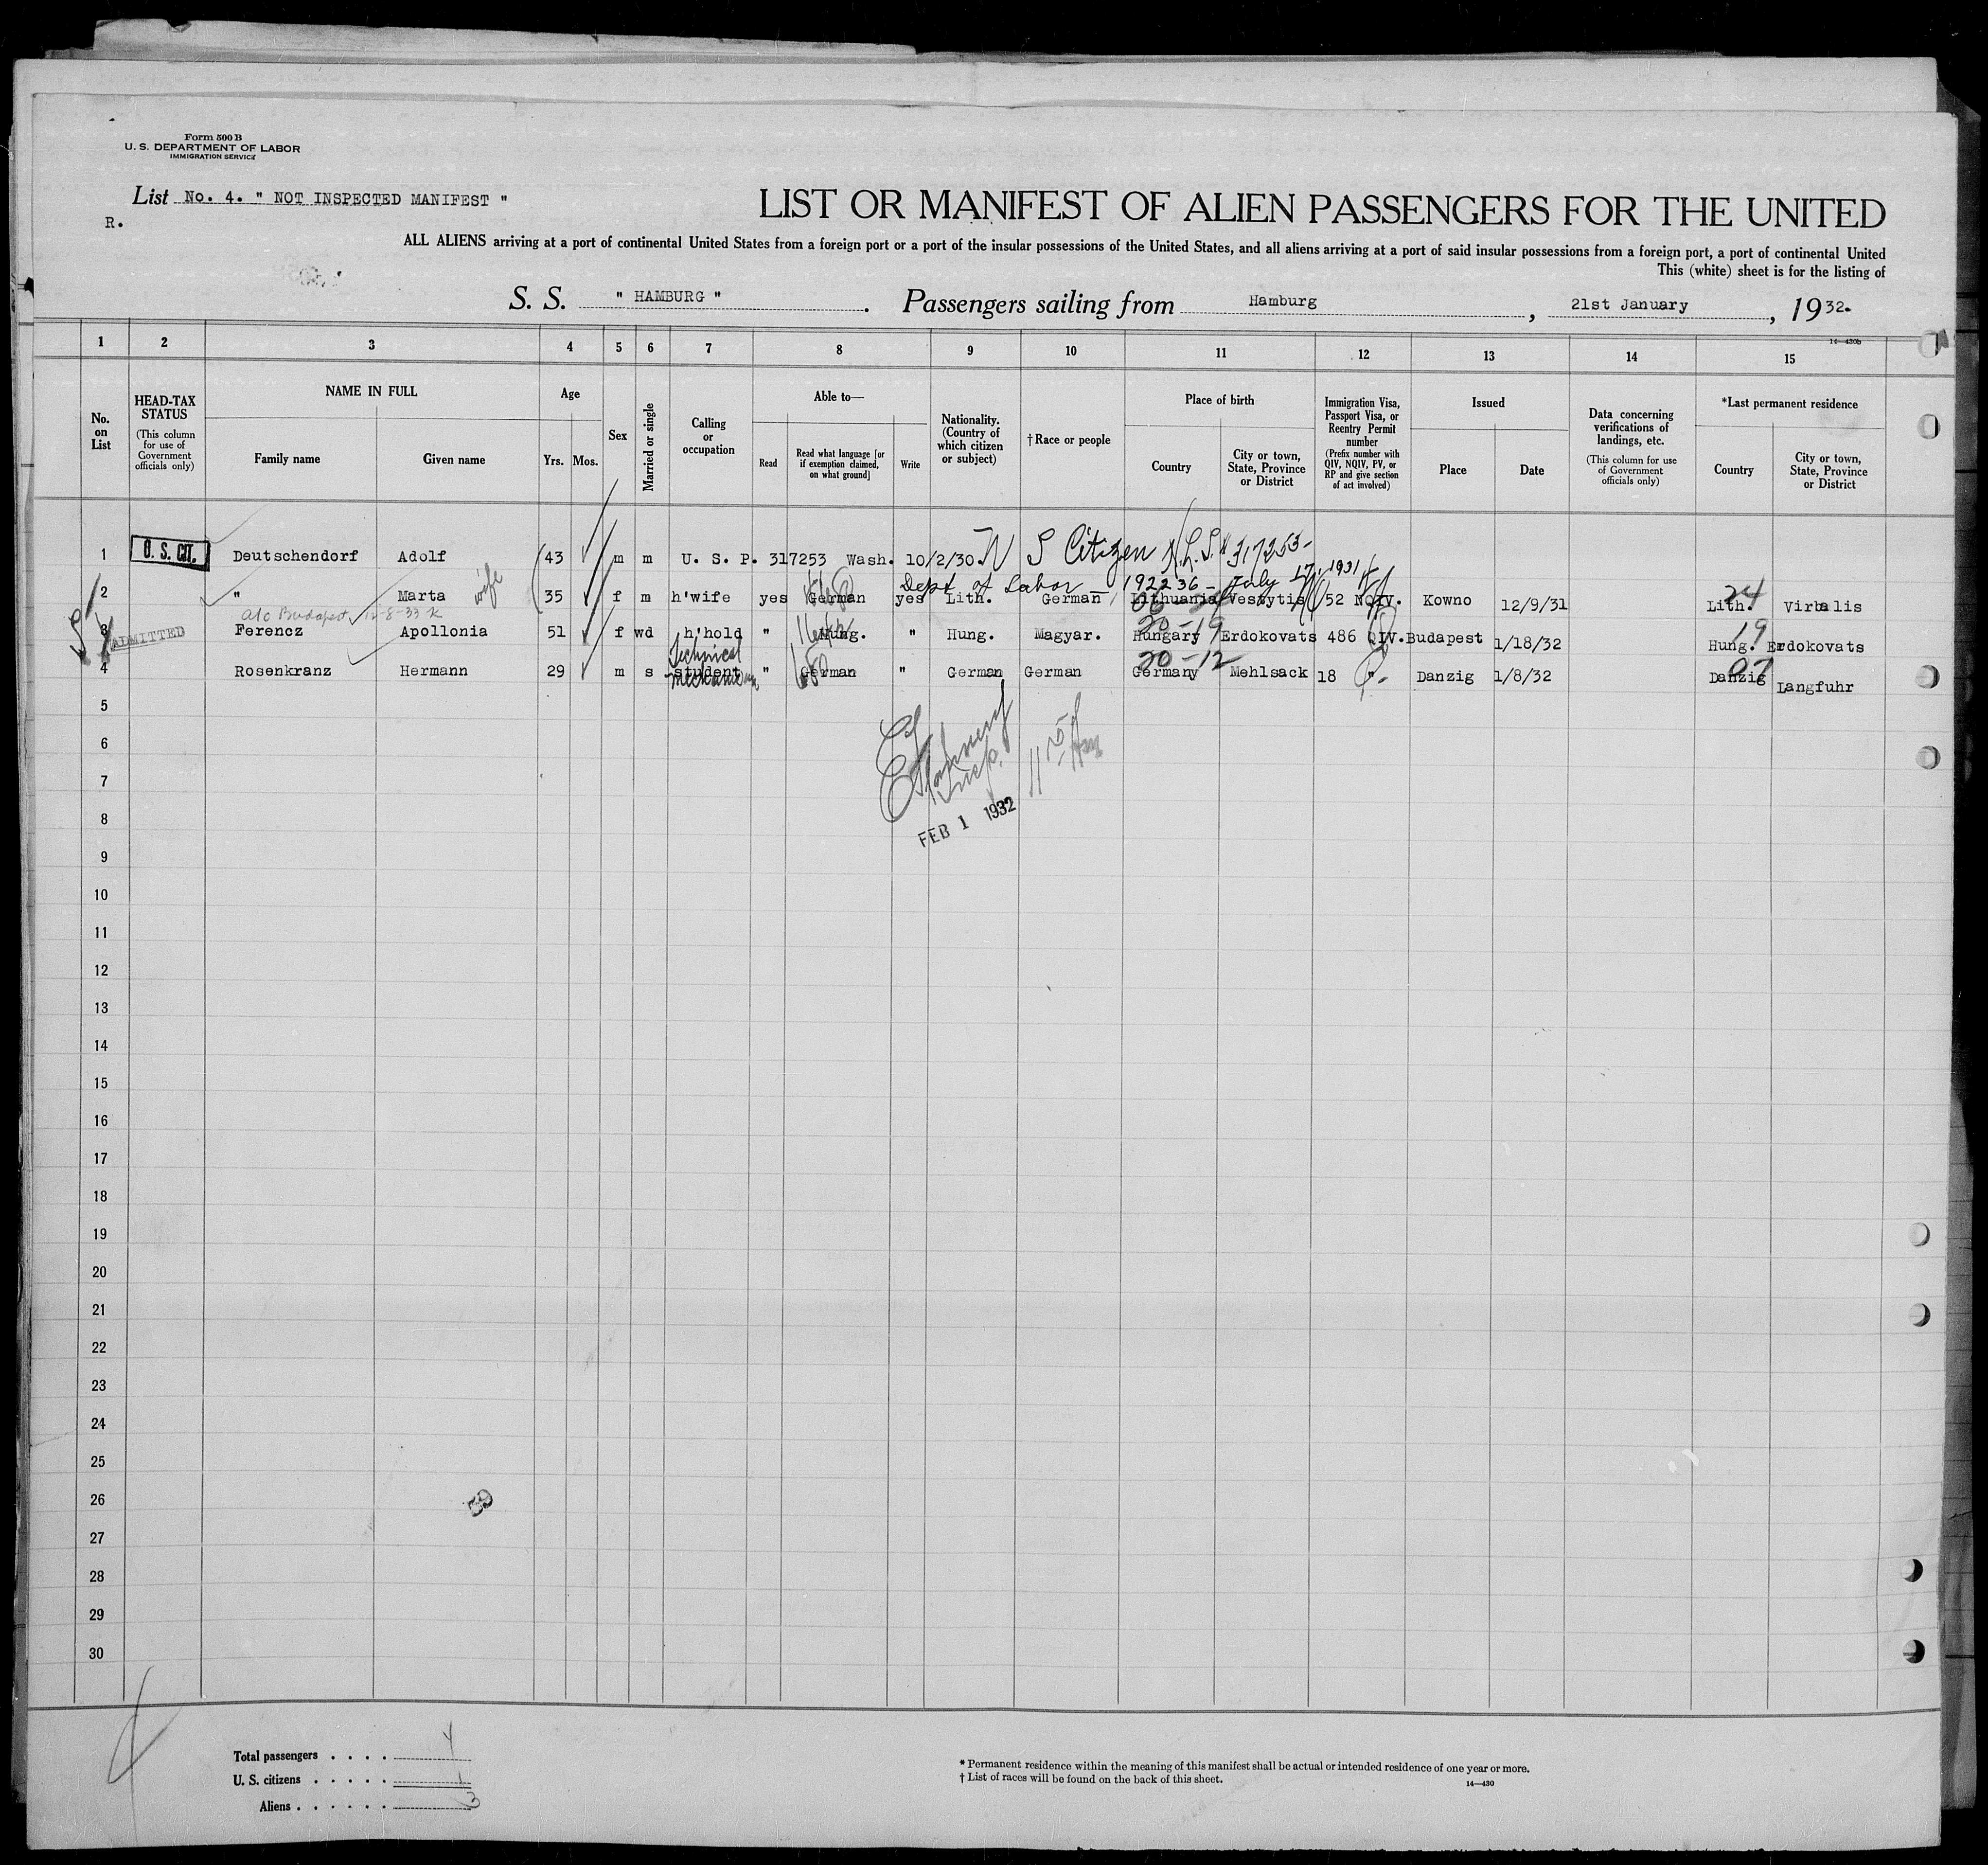 Form 500 B
U. S. DEPARTMENT OF LABOR
IMMIGRATION SERVICE
List No. 4. " NOT INSPECTED MANIFEST "
R.
LIST OR MANIFEST OF ALIEN PASSENGERS FOR THE UNITED
ALL ALIENS arriving at a port of continental United States from a foreign port or a port of the insular possessions of the United States, and all aliens arriving at a port of said insular possessions from a foreign port, a port of continental United
This (white) sheet is for the listing of
S. S. " HAMBURG ". Passengers sailing from Hamburg, 21st January, 1932.
14—430b
1 2 3 4 5 6 7 8 9 10 11 12 13 14 15
No. on List
HEAD-TAX STATUS (This column for use of Government officials only)
NAME IN FULL
Family name Given name
Age
Yrs. Mos.
Sex
Married or single
Calling or occupation
Able to—
Read Read what language [or if exemption claimed, on what ground] Write
Nationality. (Country of which citizen or subject)
†Race or people
Place of birth
Country City or town, State, Province or District
Immigration Visa, Passport Visa, or Reentry Permit number (Prefix number with QIV, NQIV, PV, or RP and give section of act involved)
Issued
Place Date
Data concerning verifications of landings, etc. (This column for use of Government officials only)
*Last permanent residence
Country City or town, State, Province or District
1 U. S. CIT. Deutschendorf Adolf 43 m m U. S. P. 317253 Wash. 10/2/30 U S Citizen 317253
Dept of Labor — 192236 — July 17, 1931
2 " Marta wife 35 f m h'wife yes German yes Lith. German Lithuania Vestytis 52 NQIV. Kowno 12/9/31 24 Lith. Virbalis
a/c Budapest 12-8-33 K
3 ADMITTED Ferencz Apollonia 51 f wd h'hold " Hung. " Hung. Magyar. 20-19 Hungary Erdokovats 486 QIV. Budapest 1/18/32 19 Hung. Erdokovats
4 Rosenkranz Hermann 29 m s Technical student " German " German German 20-12 Germany Mehlsack 18 " Danzig 1/8/32 07 Danzig Langfuhr
5
6
7
Insp.
8
FEB 1 1932
9
10
11
12
13
14
15
16
17
18
19
20
21
22
23
24
25
26
27
28
29
30
Total passengers . . . . 4
U. S. citizens . . . . . 1
Aliens . . . . . . 3
* Permanent residence within the meaning of this manifest shall be actual or intended residence of one year or more.
† List of races will be found on the back of this sheet.
14—430